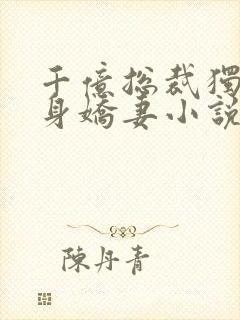 千億總裁獨
身嬌妻小說
陳丹青